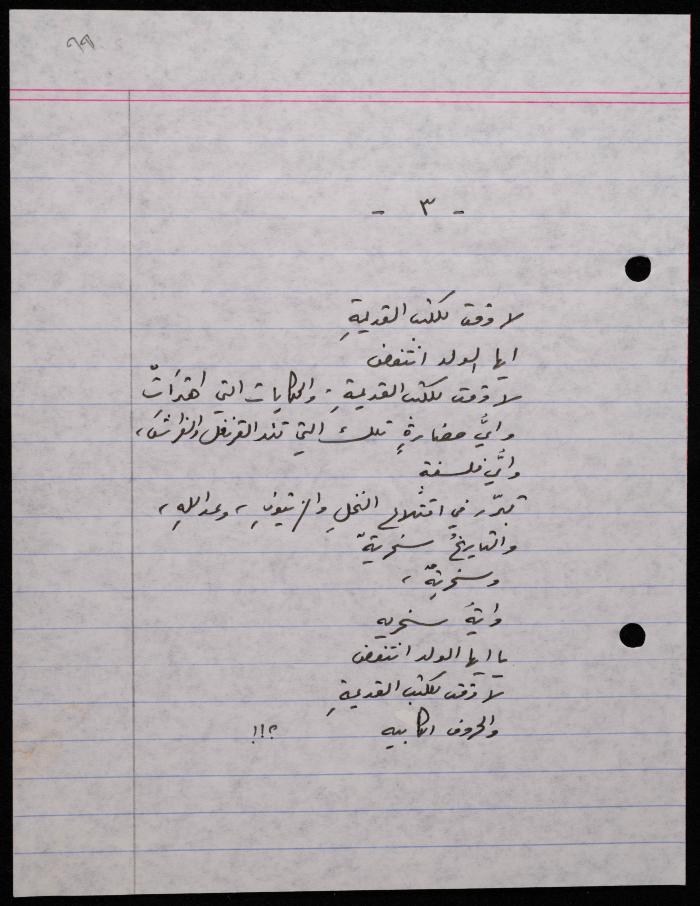 ٩٩
- ٣ -
لا وقت للكتب القديمةِ
ايها الولد انتفض
لا وقت للكتب القديمةِ، والحكايات التي اهترأتْ
وايُّ حضارةٍ تلك التي تئد القرنفل والفراشَ،
وايُّ فلسفةٍ
تبرّر في اقتلاع النخلِ والزيتونِ، وعد اللهِ،
والتاريخُ سخريةٌ
وسخريةٌ،
وايةُ سخريه
يا ايها الولد انتفض
لا وقت للكتب القديمةِ
والحروف الكابيه ؟!!